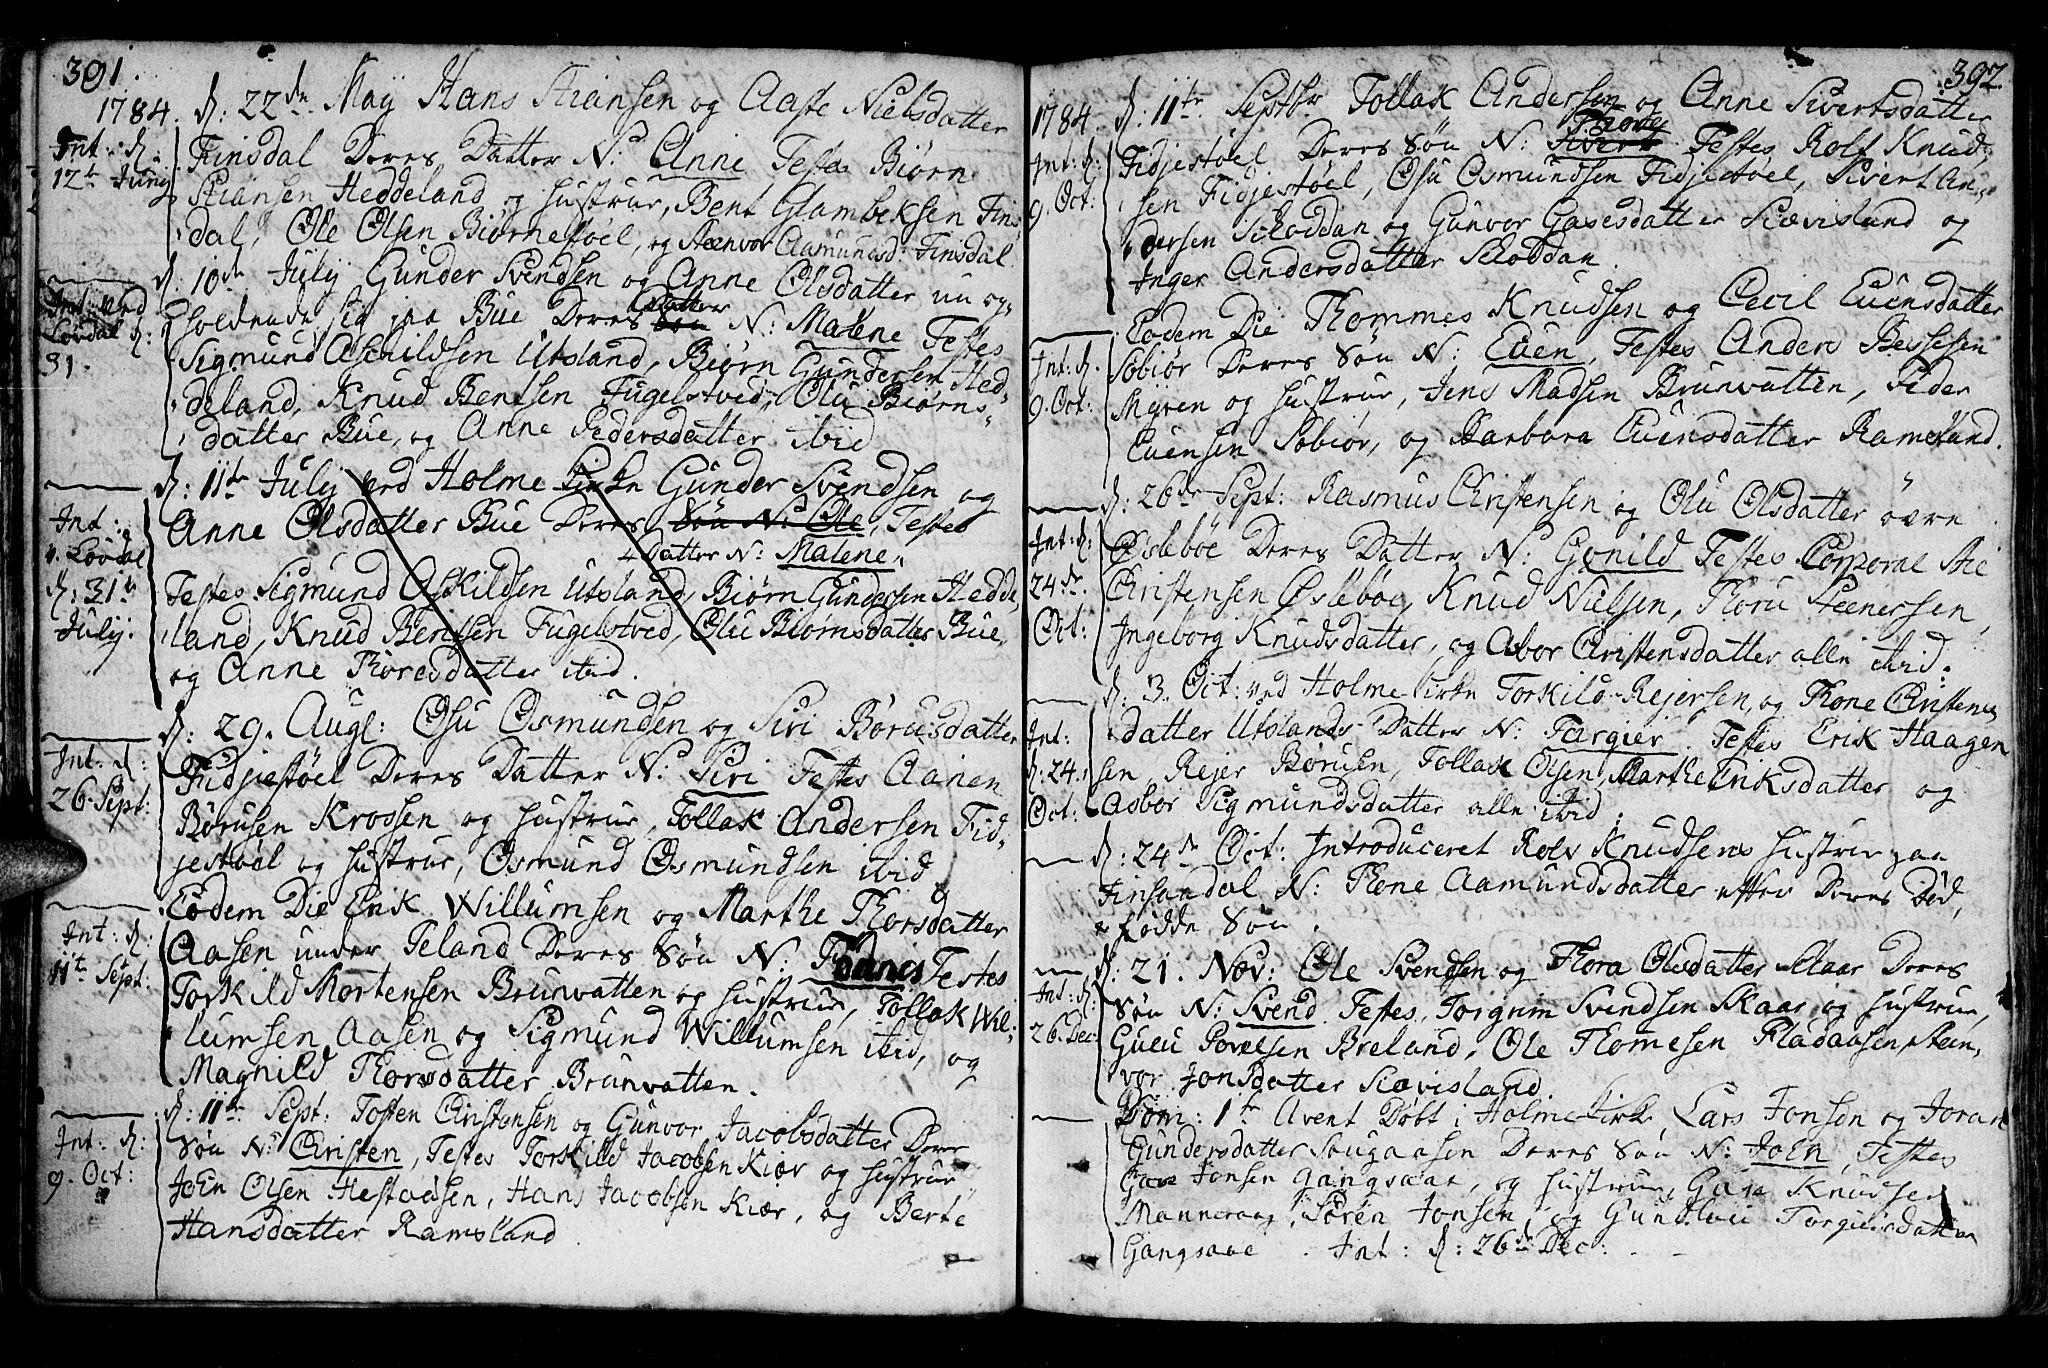 391.
1784. d: 22de Maÿ Hans Stiansen og Aaste Nielsdatter
Int: d:
12te Junÿ
Finsdal Deres Datter N: Anne Testes Biørn
Stiansen Heddeland og hustrue, Bent Glambeksen Fins,
dal, Ole Olsen Biørnestøel, og Steenvor Aamundsd: Finsdal.
d: 10de Julÿ Gunder Svendsen og Anne Olsdatter nu op,
Int: ved
Løvdal d:
31.
holdende sig paa Bue Deres Søn Datter N: Malene Testes
Sigmund Askildsen Utsland, Biørn Gundersen Hed,
deland, Knud Bentsen Fugelstved, Olu Biørns,
datter Bue, og Anne Pedersdatter ibid
d: 11te Julÿ ved Holme Kirke Gunder Svendsen og
Int:
v. Løvdal
d: 31te
Julÿ.
Anne Olsdatter Bue Deres Søn N: Ole, Testes
Datter N: Malene
Testes Sigmund Askildsen Utsland, Biørn Gundersen Hedde,
land, Knud Bentsen Fugelstved, Olu Biørnsdatter Bue,
og Anne Thoresdatter ibid.
d: 29. Augl: Osu Osmundsen og Siri Børusdatter
Int: d:
26. Sept:
Fidjestøel Deres Datter N: Siri Testes Aanen
Børusen Krossen og hustrue, Tollak Andersen Fid,
jestøel og hustrue, Osmund Osmundsen ibid
Eodem Die Erik Willumsen og Marthe Thorsdatter
Int: d:
11te Sept.
Aasen under Teland Deres Søn N: Testes
Torkild Mortensen Brunvatten og hustrue, Tollak Wil,
lumsen Aasen og Sigmund Willumsen ibid, og
Magnild Thorsdatter Brunvatten.
d: 11te Sept: Tosten Christensen og Gunvor Jacobsdatter Deres
Int: d:
9. Oct:
Søn N: Christen, Testes Torkild Jacobsen Kiær og hustrue
Joen Olsen Hestaasen, Hans Jacobsen Kiær, og Berte
Hansdatter Ramsland
392.
1784. d: 11te Septbr Tollak Andersen og Anne Sivertsdatter
Int: d:
9. Oct:
Fidjestøel Deres Søn N: Sivert Testes Rolf Knud,
sen Fidjestøel, Osu Osmundsen Fidjestøel, Sivert An,
dersen Skoddan og Gunvor Gasesdatter Skævisland og
Inger Andersdatter Skoddan.
Eodem Die Thommes Knudsen og Cecil Evensdatter
Int: d.
9. Oct:
Søbiør Deres Søn N: Even, Testes Anders Bessesen
Mÿren og hustrue, Jens Madsen Brunvatten, Peder
Evensen Søbiør, og Barbara Evensdatter Ramsland.
d: 26de Sept: Rasmus Christensen og Olu Olsdatter øvre
Int: d:
24de
Oct:
Øslebøe Deres Datter N: Gunild Testes Corporal Stie
Christensen Øslebøe, Knud Nielsen, Thoru Steenersen,
Ingeborg Knudsdatter, og Asbor Christensdatter alle ibid.
d: 3. Oct: ved Holme Kirke Torkild Rejersen, og Thone Christens
Int:
d: 24.
Oct:
datter Utslands Datter N: Targier. Testes Erik Haagen
sen, Rejer Børusen, Tollak Olsen, Marthe Eriksdatter og
Asbor Sigmundsdatter alle ibid.
d: 24de Oct: Introduceret Rolv Knudsens hustrue paa
Finsandal N: Thone Aamundsdatter efter Deres Død,
fødde Søn.
d: 21. Nov: Ole Svendsen og Thora Olsdatter Skaar Deres
Int: d:
26. Dec:
Søn N: Svend. Testes, Torgrim Svendsen Skaar og hustrue,
Guru Povelsen Breland, Ole Thomesen Fladaasen, Steen,
vor Jonsdatter Skævisland
Dom: 1te Avent Døbt i Holme Kirke Lars Jonsen og Joran
Gundersdatter Sougaasen Deres Søn N: Joen Testes
Gare Jonsen Gangsaae, og hustrue, Gare Knudsen
Manneraag, Søren Jonsen, og Gundlou Torgiusdatter
Gangsaae. Int: d: 26de Dec: